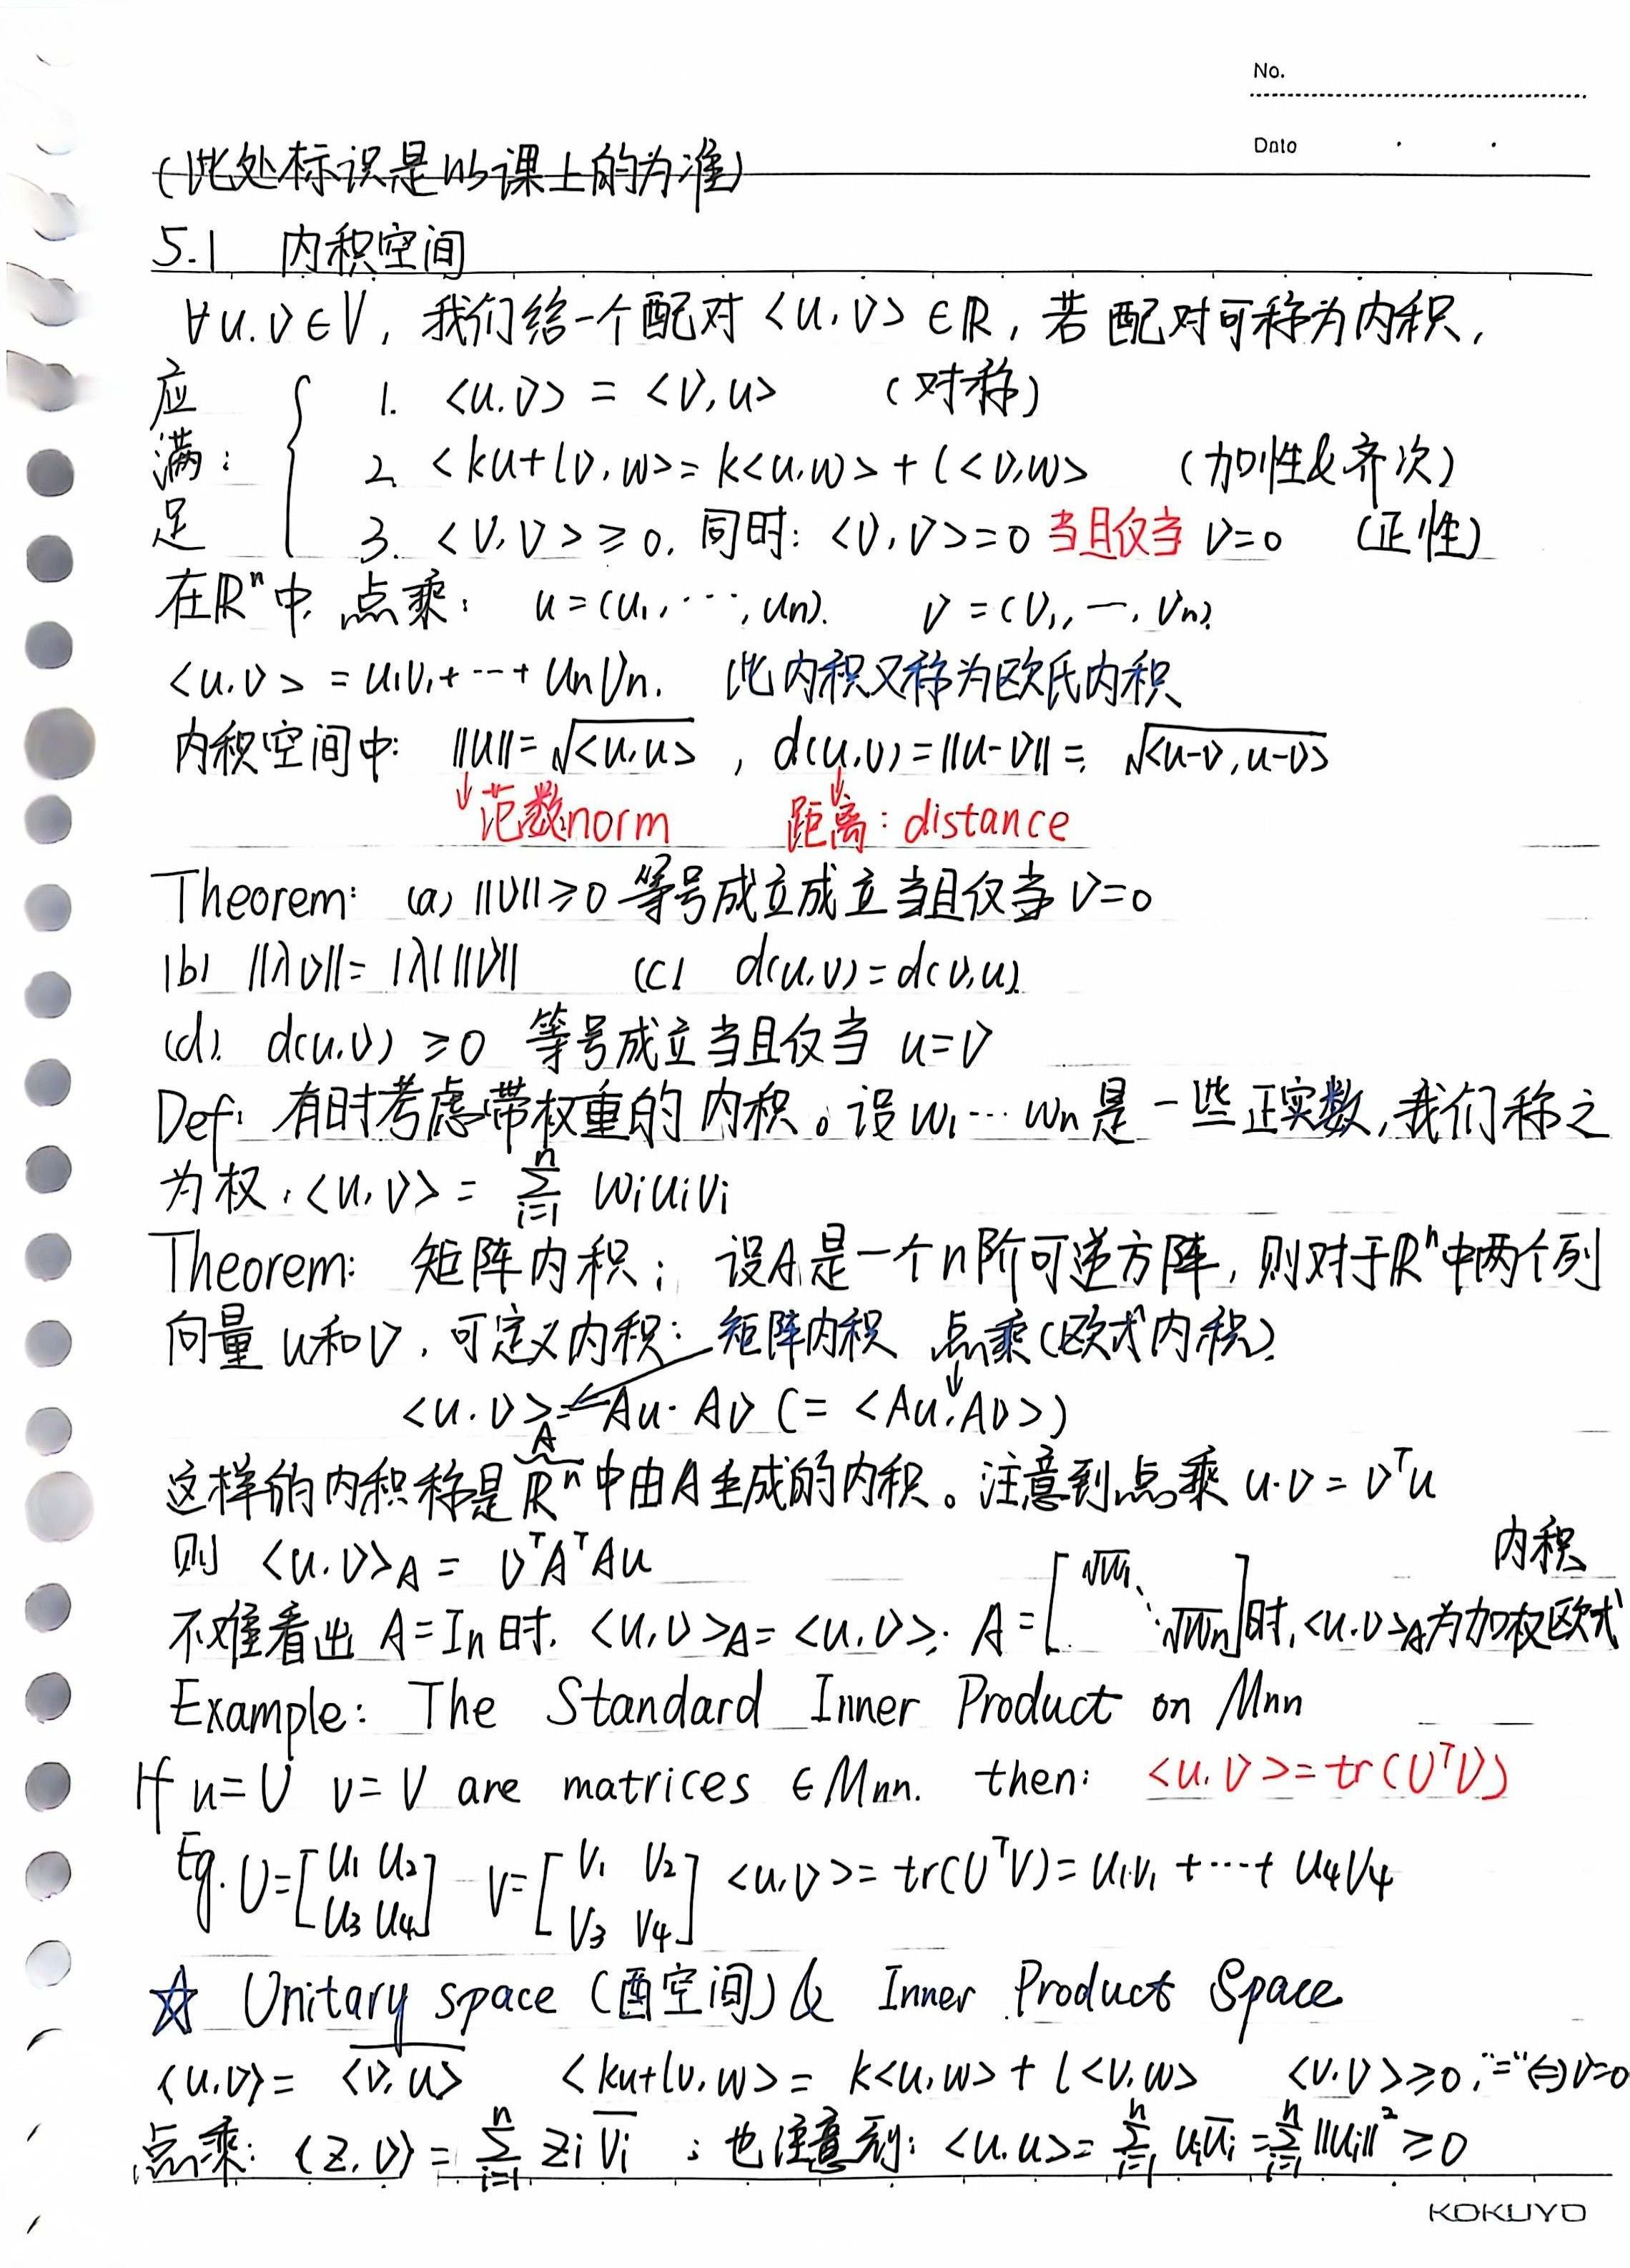 No.
Date
(此处标识是以课上的为准)
5.1 内积空间
∀u.v∈V, 我们给一个配对<u,v>∈ℝ, 若配对可称为内积,
应满足: { 1. <u.v> = <v,u> (对称)
2. <ku+lv,w>=k<u,w>+l<v,w> (加性&齐次)
3. <v,v>≥0. 同时: <v,v>=0 当且仅当 v=0 (正性)
在ℝⁿ中, 点乘: u=(u₁,⋯,uₙ). v=(v₁,—,vₙ).
<u.v> = u₁v₁+⋯+uₙvₙ. 此内积又称为欧氏内积
内积空间中: ||u||=√<u,u> , d(u,v)=||u-v||=√<u-v,u-v>
↓范数norm ↓距离: distance
Theorem: (a) ||v||≥0 等号成立成立当且仅当 v=0
(b) ||λv||=|λ|||v|| (c) d(u,v)=d(v,u)
(d). d(u,v)≥0 等号成立当且仅当 u=v
Def: 有时考虑带权重的内积。设w₁⋯wₙ是一些正实数,我们称之
为权:<u,v>= ∑ᵢ₌₁ⁿ wᵢuᵢvᵢ
Theorem: 矩阵内积: 设A是一个n阶可逆方阵, 则对于ℝⁿ中两个列
向量u和v, 可定义内积: 矩阵内积 点乘(欧式内积)
<u.v>_A = Au·Av (= <Au,Av>)
这样的内积称是ℝⁿ中由A生成的内积。注意到点乘 u·v=vᵀu
则 <u.v>_A = vᵀAᵀAu
不难看出 A=Iₙ时. <u,v>_A=<u,v>; A=[√w₁ ⋱ √wₙ]时,<u.v>_A为加权欧式内积
Example: The Standard Inner Product on Mnn
If u=U v=V are matrices ∈Mnn. then: <u.v>=tr(UᵀV)
Eg. U=[u₁ u₂ u₃ u₄] V=[v₁ v₂ v₃ v₄] <u,v>=tr(UᵀV)=u₁v₁+⋯+u₄v₄
☆ Unitary space (酉空间) & Inner Product Space
<u,v>= \overline{<v,u>} <ku+lv,w>=k<u,w>+l<v,w> <v.v>≥0,"="⇔v=0
点乘: <z,v>= ∑ᵢ₌₁ⁿ zᵢ\overline{vᵢ} ; 也注意到: <u.u>= ∑ᵢ₌₁ⁿ uᵢ\overline{uᵢ}=∑ᵢ₌₁ⁿ||uᵢ||²≥0
KOKUYO